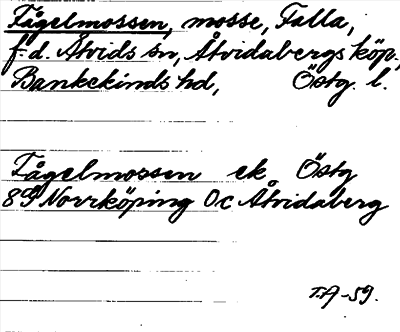 Fågelmossen, mosse, Falla,
f.d. Åtvids sn, Åtvidabergs köp.,
Bankekinds hd, Östg. l.
Fågelmossen ek. Östg
8G Norrköping 0c Åtvidaberg
T.A-59.